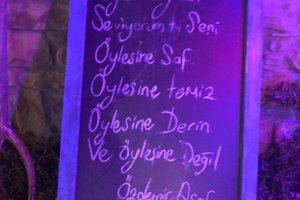 Seviyorum ki Seni
Öylesine Saf
Öylesine temiz
Öylesine Derin
Ve Öylesine Değil
Özdemir Asaf